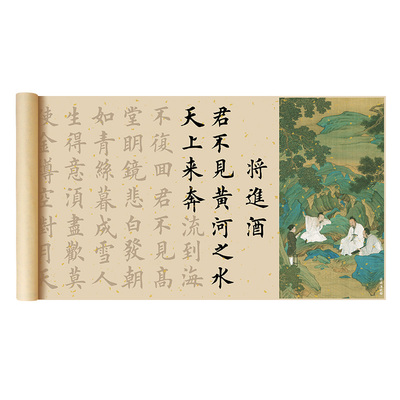 將進酒
君不見黄河之水
天上来奔流到海
不復回君不見髙
堂明鏡悲白發朝
如青絲暮成雪人
生得意湏盡歡莫
使金樽空對月天